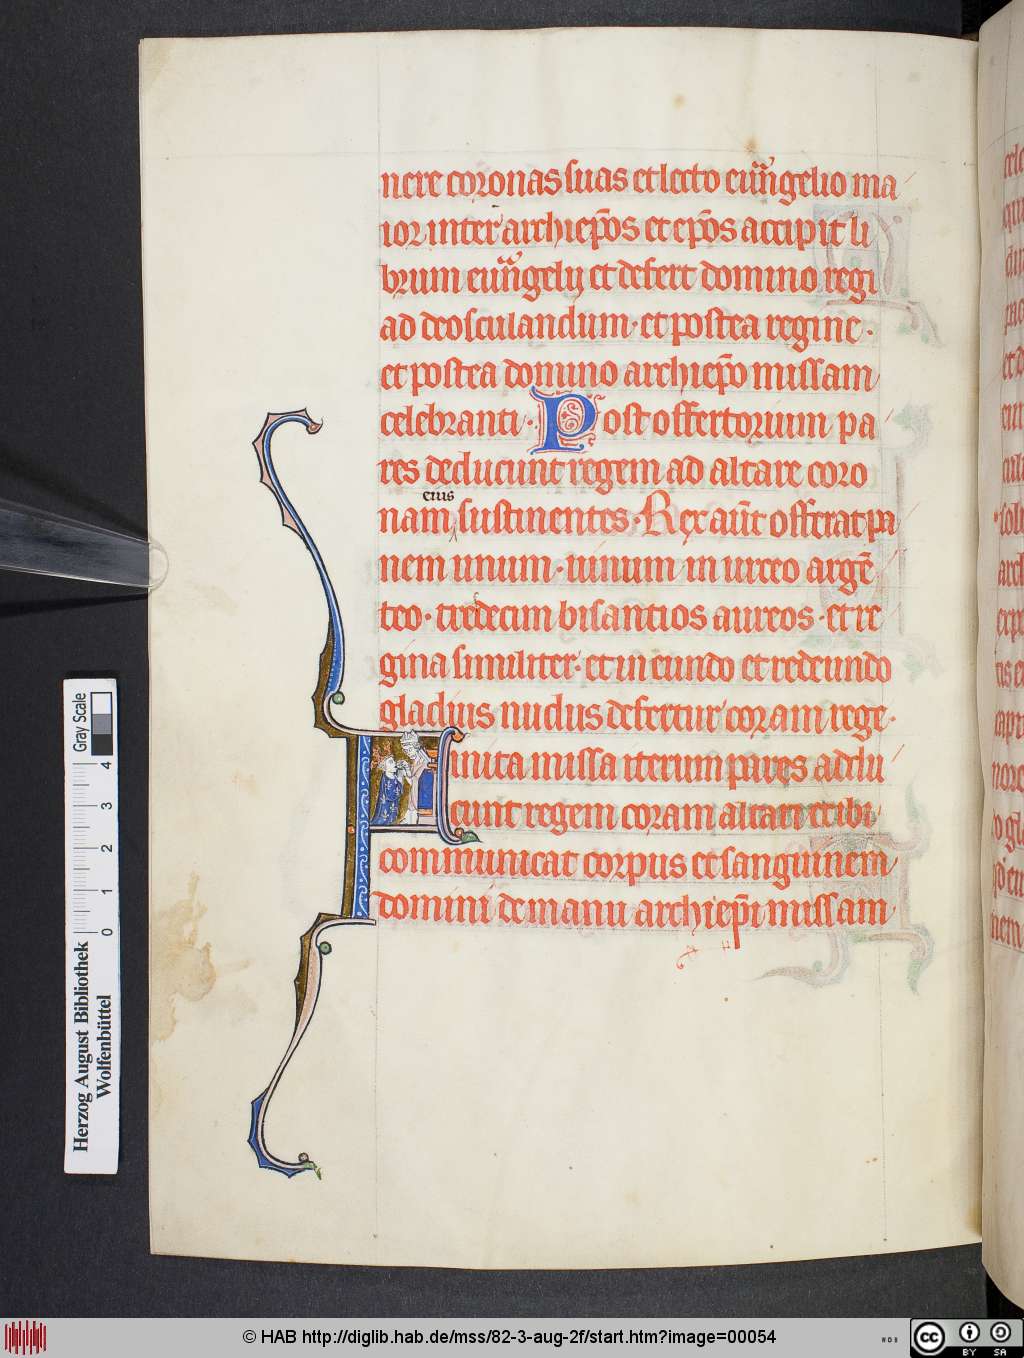 nere coronas suas et lecto euāngelio ma
ior inter archiep̄os et ep̄os accipit li
brum euāngelij et defert domino regi
ad deosculandum · et postea regine ·
et postea domino archiep̄o missam
celebranti · Post offertorium pa
res deducunt regem ad altare coro
nam eius sustinentes · Rex aūt offerat pa
nem unum · uinum in urceo argē
teo · tredecim bisantios aureos · et re
gina similiter · et in eundo et redeundo
gladius nudus defertur coram rege ·
Finita missa iterum pares addu
cunt regem coram altari et ibi
communicat corpus et sanguinem
domini de manu archiep̄i missam
Gray Scale
0 1 2 3 4
Herzog August Bibliothek
Wolfenbüttel
© HAB http://diglib.hab.de/mss/82-3-aug-2f/start.htm?image=00054
WDB
cc BY SA